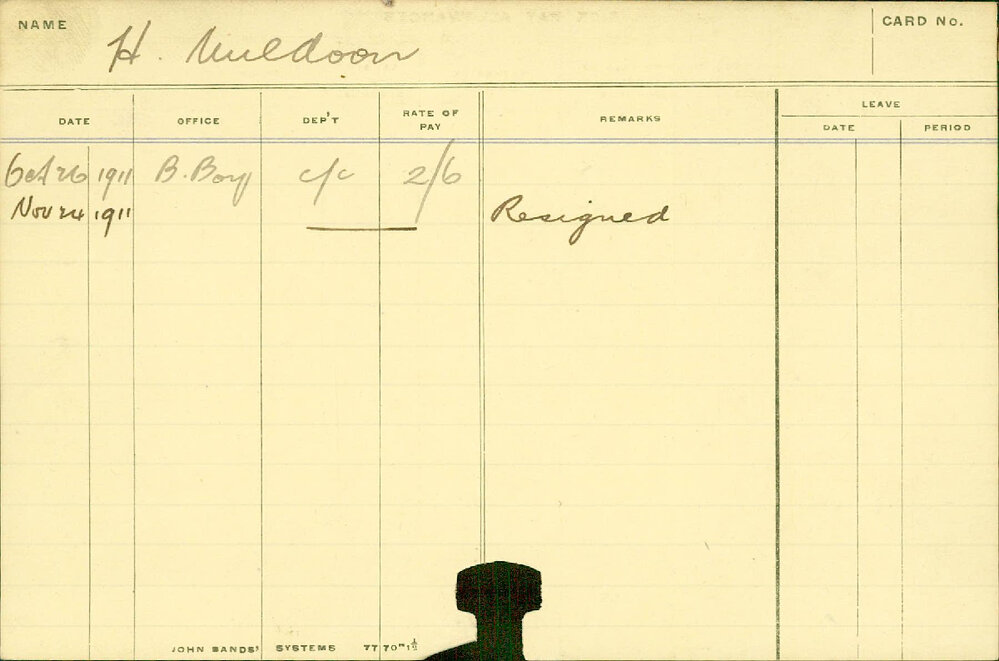 NAME H. Muldoon CARD No.
LEAVE
DATE OFFICE DEP'T RATE OF PAY REMARKS DATE PERIOD
Oct 26 1911 B. Boy c/c 2/6
Nov 24 1911 Resigned
JOHN SANDS' SYSTEMS 77 70